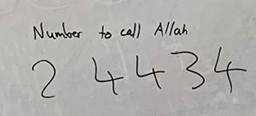 Number to call Allah
2 4434